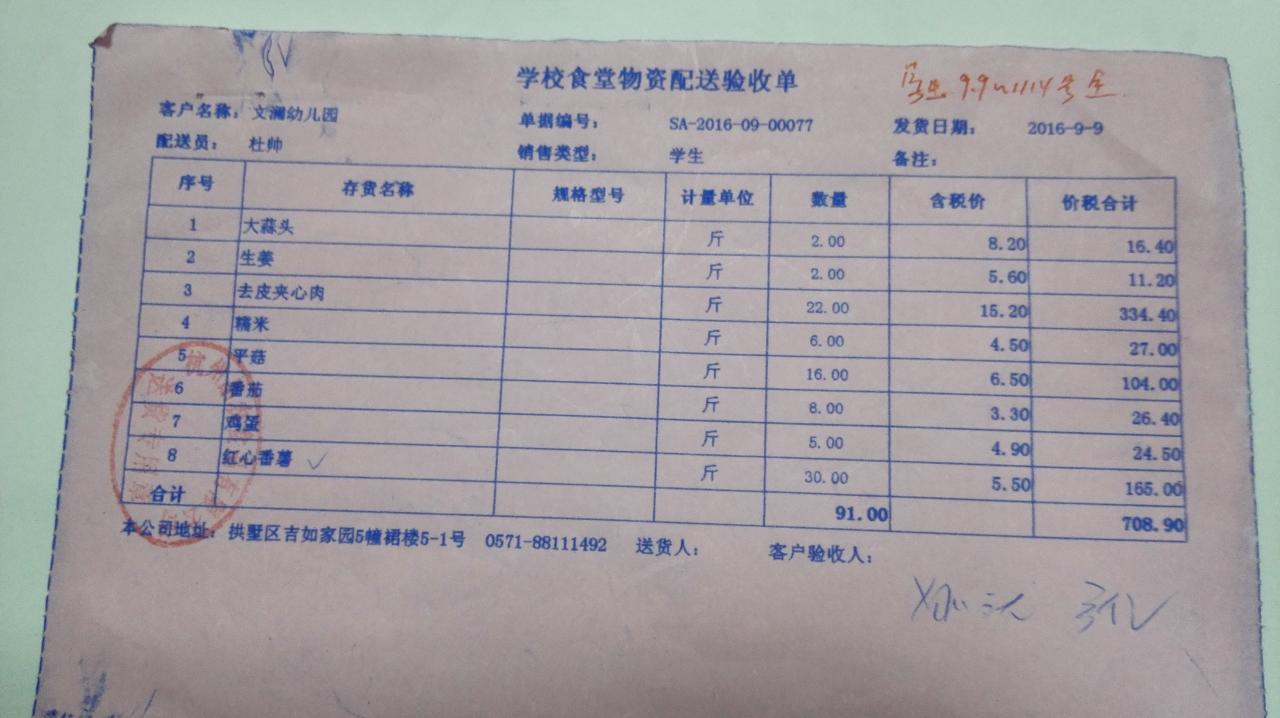 学校食堂物资配送验收单
客户名称： 文澜幼儿园 单据编号： SA-2016-09-00077 发货日期： 2016-9-9
配送员： 杜帅 销售类型： 学生 备注：
序号 存货名称 规格型号 计量单位 数量 含税价 价税合计
1 大蒜头 斤 2.00 8.20 16.40
2 生姜 斤 2.00 5.60 11.20
3 去皮夹心肉 斤 22.00 15.20 334.40
4 糯米 斤 6.00 4.50 27.00
5 平菇 斤 16.00 6.50 104.00
6 番茄 斤 8.00 3.30 26.40
7 鸡蛋 斤 5.00 4.90 24.50
8 红心番薯 斤 30.00 5.50 165.00
合计 91.00 708.90
本公司地址： 拱墅区吉如家园5幢裙楼5-1号 0571-88111492 送货人： 客户验收人：